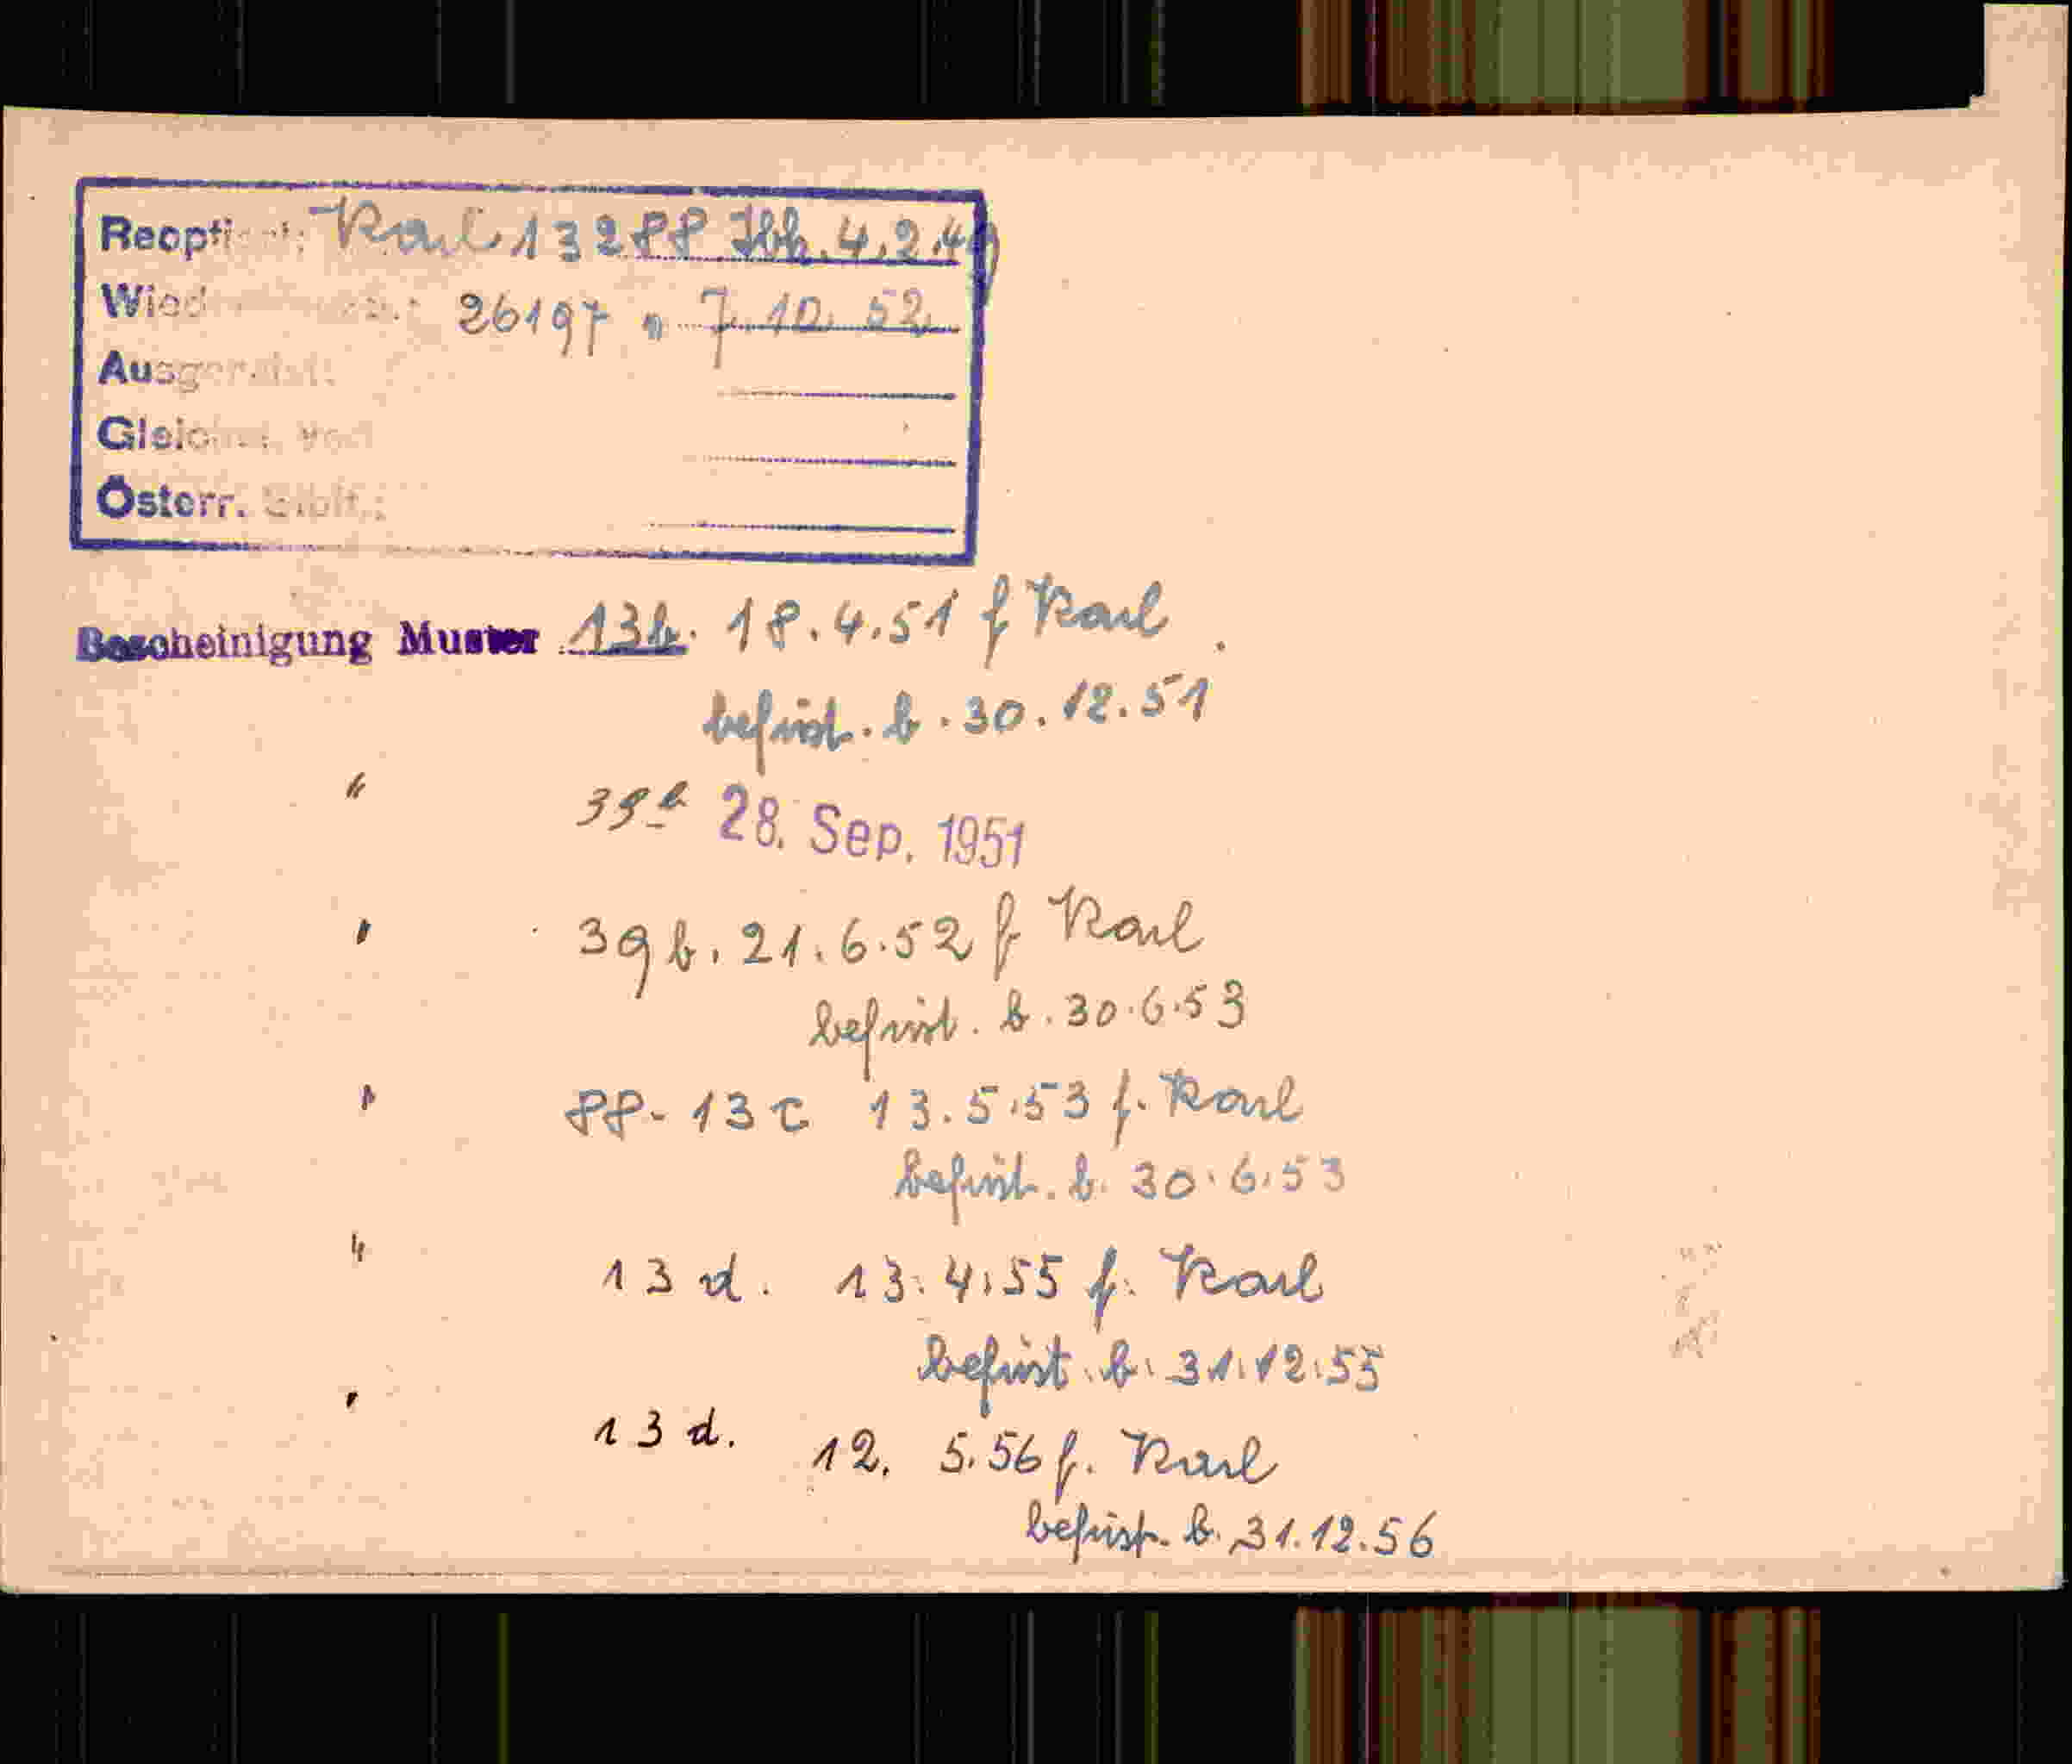 Reoptiert: Karl 13288 Ibk. 4.2.49
26197 " 7.10.52
Ausgereist:
Gleichst. 
Österr.
Bescheinigung Muster 13b. 18.4.51 f Karl
befrist. b. 30.12.51
" 39b 28. Sep. 1951
" 39b. 21.6.52 f Karl
befrist. b. 30.6.53
" 88- 13c 13.5.53 f. Karl
befrist. b. 30.6.53
" 13 d. 13.4.55 f. Karl
befrist. b. 31.12.55
" 13 d. 12. 5.56 f. Karl
befrist. b. 31.12.56